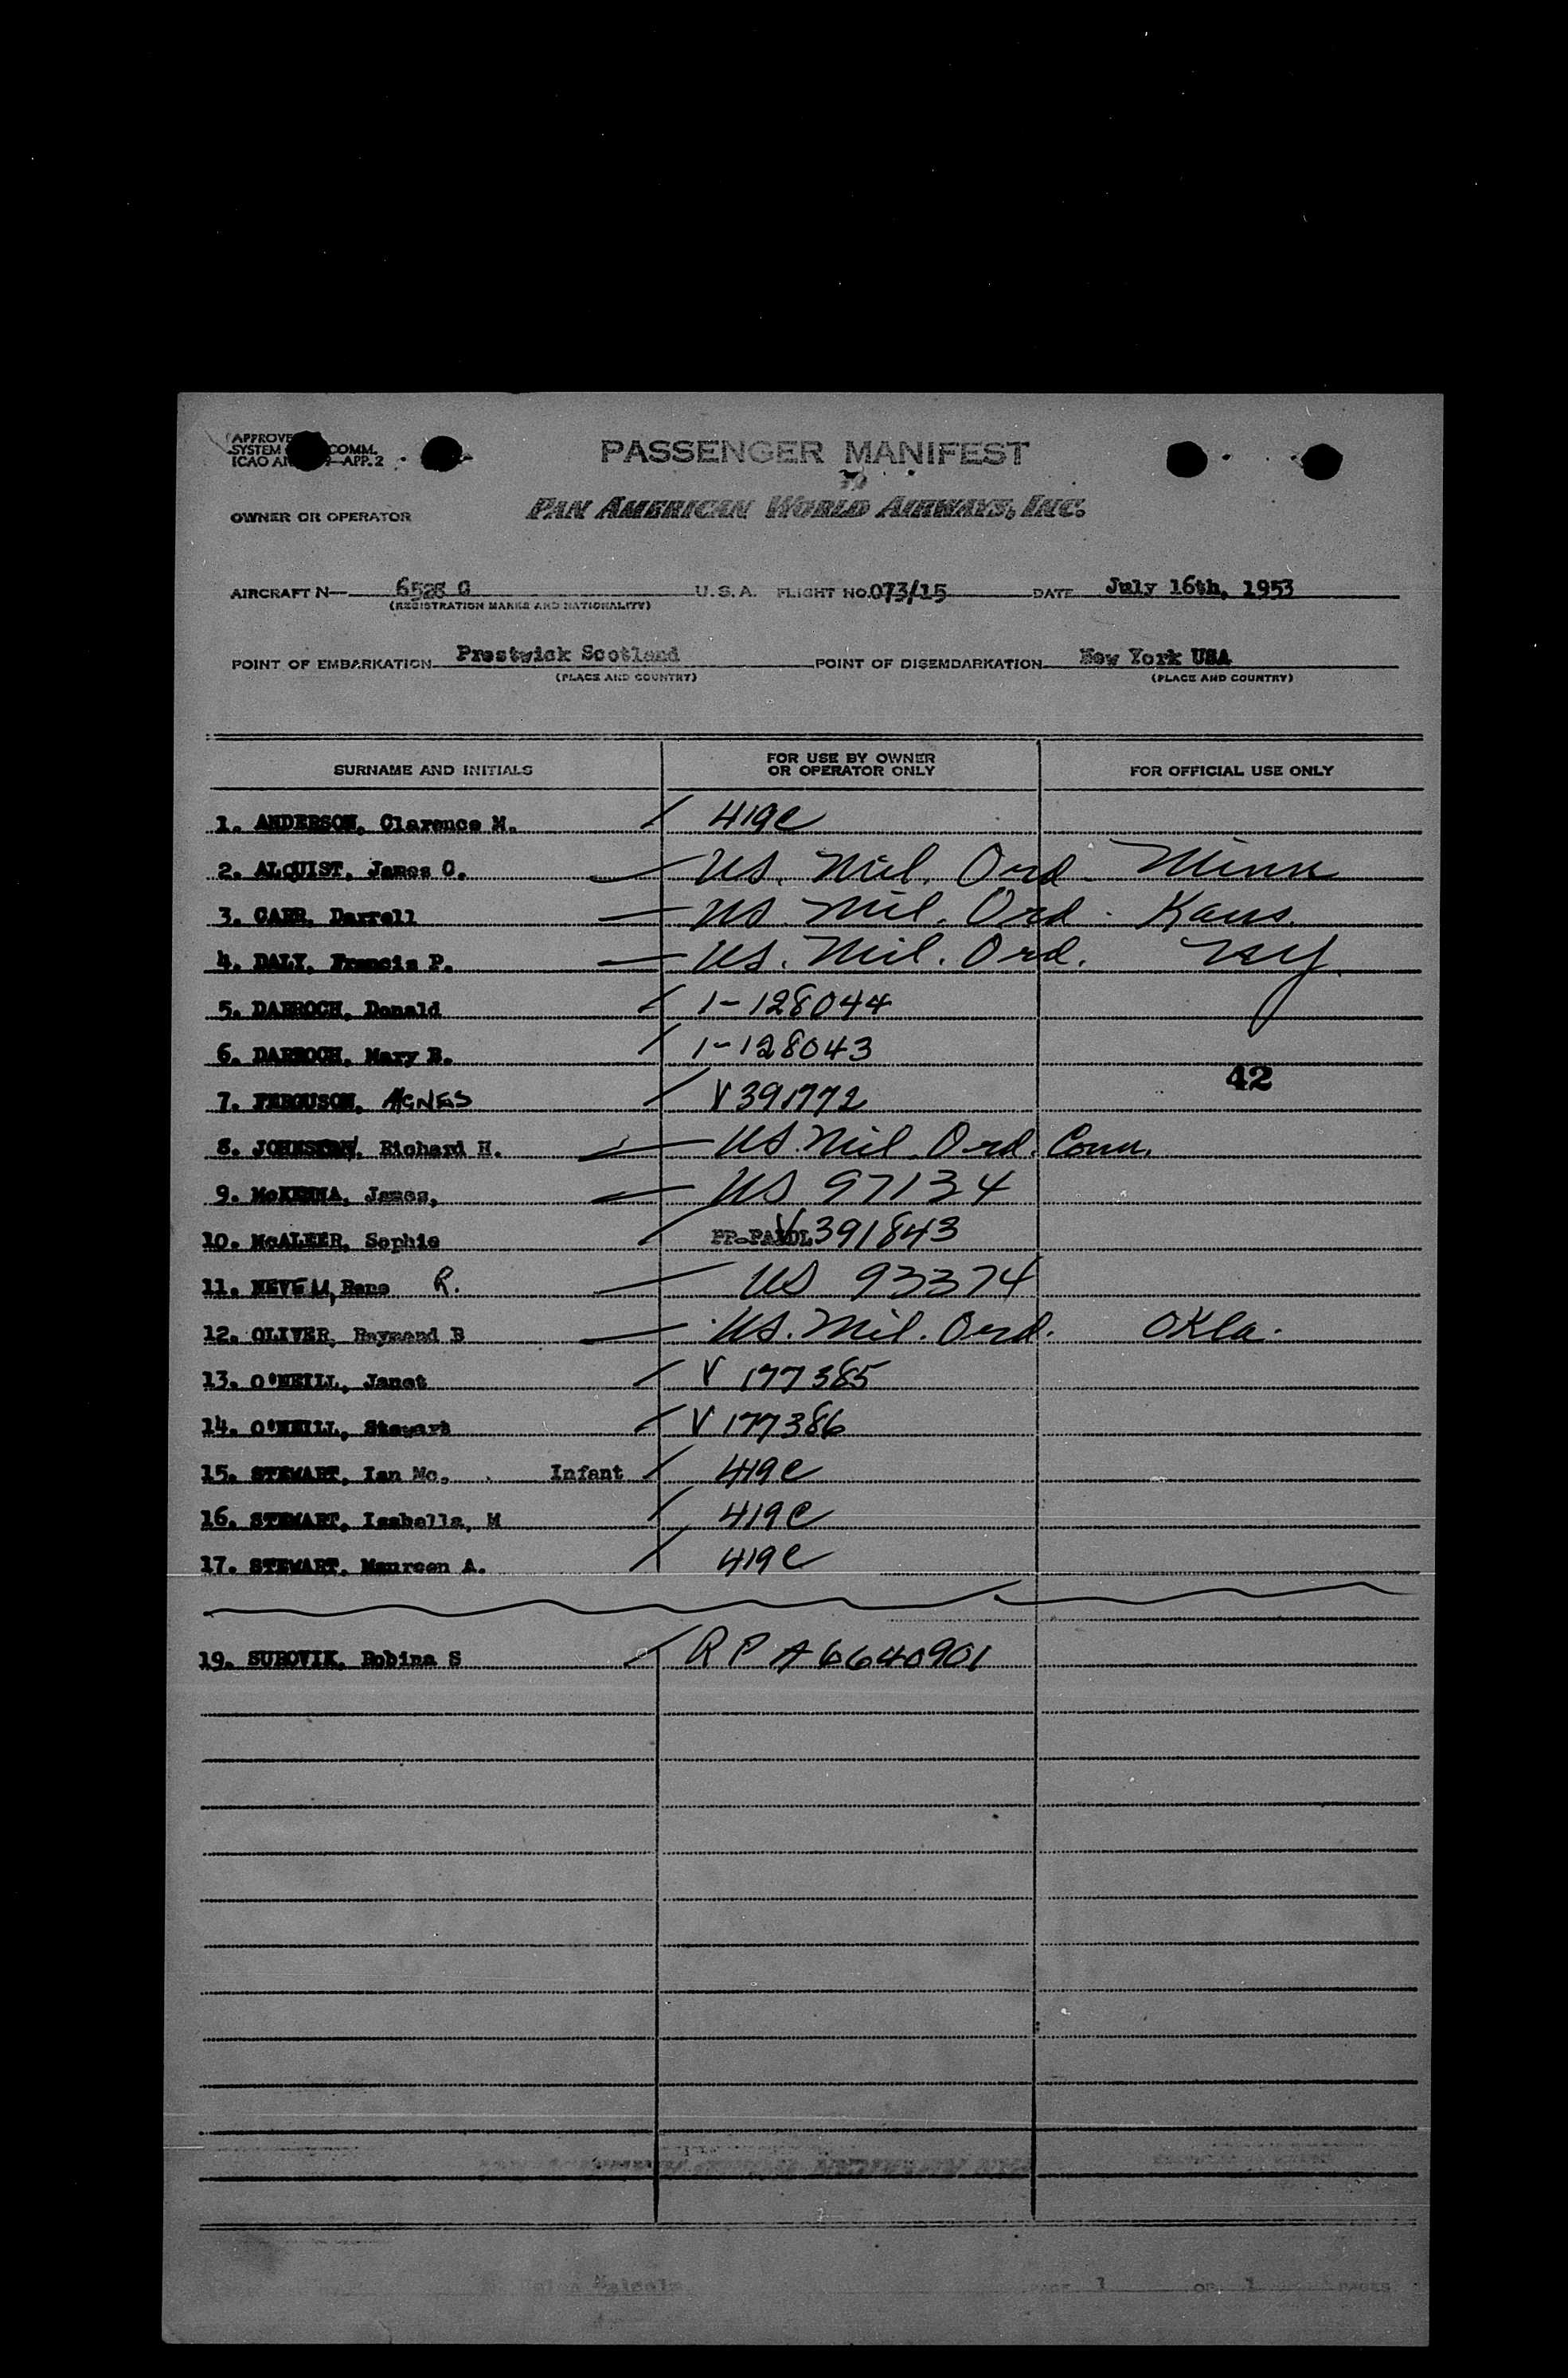 PASSENGER MANIFEST
OWNER OR OPERATOR PAN AMERICAN WORLD AIRWAYS, INC.
AIRCRAFT N— 6528 C U.S.A. FLIGHT NO. 073/15 DATE July 16th, 1953
(REGISTRATION MARKS AND NATIONALITY)
POINT OF EMBARKATION Prestwick Scotland POINT OF DISEMBARKATION New York USA
(PLACE AND COUNTRY) (PLACE AND COUNTRY)
SURNAME AND INITIALS FOR USE BY OWNER OR OPERATOR ONLY FOR OFFICIAL USE ONLY
1. ANDERSON, Clarence M. 419c
2. ALQUIST, James O. US. Mil. Ord. Minn
3. CARR, Darrell US. Mil. Ord. Kans.
4. DALY, Francis P. US. Mil. Ord. NY.
5. DARROCH, Donald 1-128044
6. DARROCH, Mary B. 1-128043
42
7. FERGUSON, AGNES V 391772
8. Richard H. US. Mil. Ord. Conn.
9. McKENNA, James, US 97134
10. McALEER, Sophie V 391843
11. Rene R. US 93374
12. OLIVER, Raymond B US. Mil. Ord. Okla.
13. O'NEILL, Janet V 177385
14. O'NEILL, Stewart V 177386
15. STEWART, Ian Mc. Infant 419c
16. STEWART, Isabella, M 419c
17. STEWART, Maureen A. 419c
19. SUROVIK, Robina S RP A6640901
PAGE 1 OF 1 PAGES